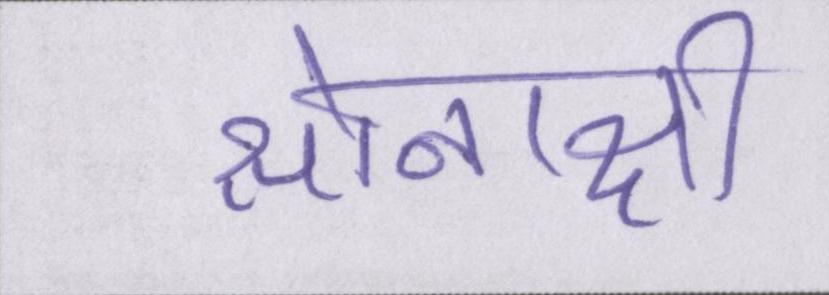 सोनाक्षी